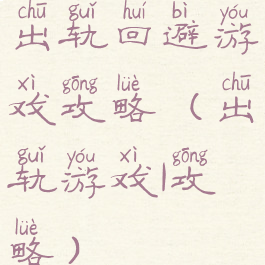 chū guǐ huí bì yóu
出轨回避游
xì gōng lüè chū
戏攻略（出
guǐ yóu xì gōng
轨游戏|攻
lüè
略）